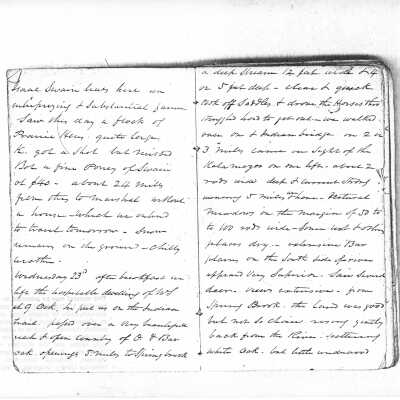 Isaac Swain lives here on
enterprizing & substantial farmer
Saw this day a flock of
Prairie Hens, quite large
got a shot but missed
Bot a fine Poney of Swain
at $40 - about 24 miles
from this to Marshal without
a house - which we intend
to travel tomorrow - Snow
remains on the ground - chilly
weather.
Wednesday 23d after breakfast we
left the hospitable dwelling of
at 9 Oclk, he put us on the Indian
trail. passed over a very beautiful
rich & open country of O & Bar
oak openings 5 miles to Spring brook
a deep Stream 12 feet wide & 4
or 5 feet deep - clear & quick
took off Saddles & drove the Horses thro
struggled hard to get out - we walked
over on Indian bridge on 2 or
3 miles came in sight of the
Kalamazoo on our left - about 2
rods wide deep & current strong
running 5 miles hour - Natural
Meadows on the margin of 50 to
to 100 rods wide - Some wet & other
places dry - extensive Bur
plains on the South side of river
appeared very Superior. Saw Several
deer - views extensive - from
Spring Brook the Land was good
but not so choice rising gently
back from the River - scattering
white Oak. but little underwood